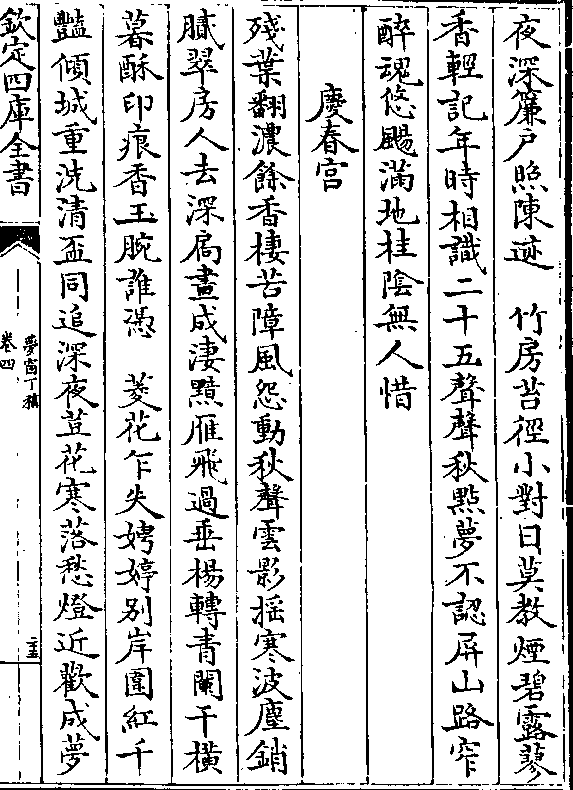 夜深簾戶照陳迹　竹房苔徑小對日莫教煙碧露蓼
香輕記年時相識二十五聲聲秋點夢不認屏山路窄
醉魂悠颺滿地桂陰無人惜
慶春宮
殘葉翻濃餘香棲苦障風怨動秋聲雲影揺寒波塵銷
膩翠房人去深扄晝成淒黯雁飛過垂楊轉青闌干橫
暮酥印痕香玉腕誰憑　菱花乍失娉婷别岸圍紅千
豔傾城重洗清盃同追深夜荳花寒落愁燈近歡成夢
欽定四庫全書
夢窗丁稿
卷四
二十五